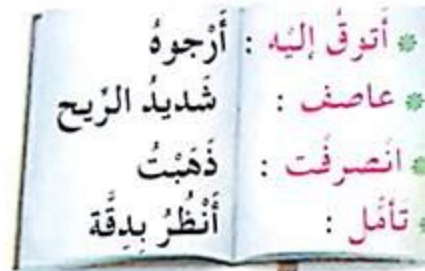 * أَتوقُ إليْه : أَرْجوهُ
* عاصف : شَديدُ الرّيح
* انْصرفْت : ذَهَبْتُ
* تَأمَّل : أَنْظُرُ بِدِقَّة